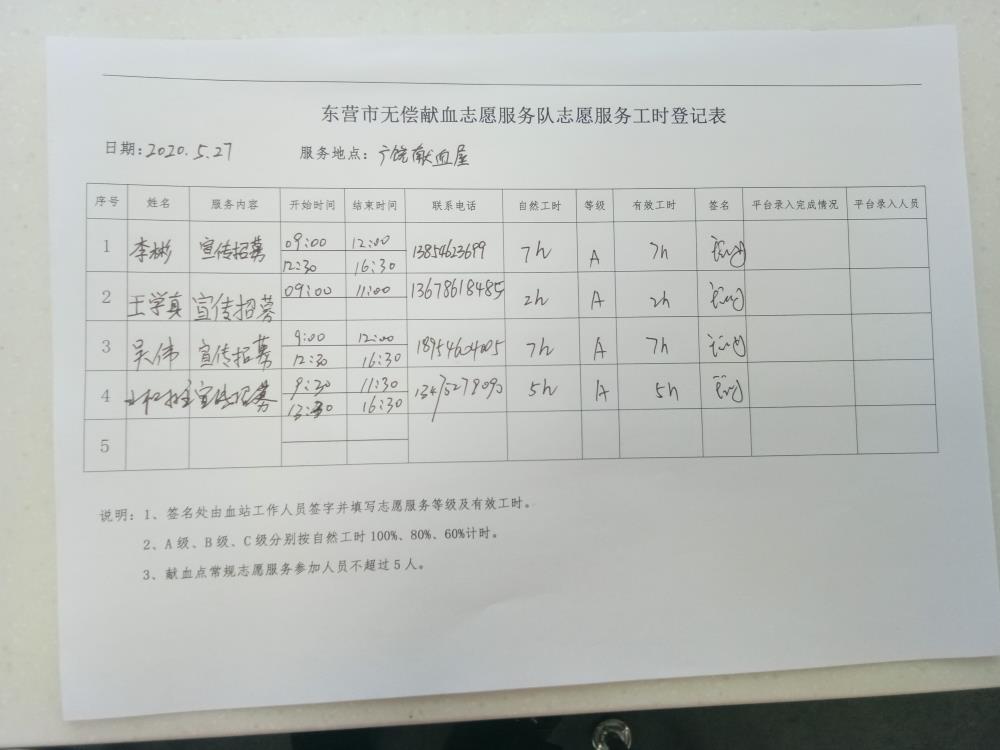 东营市无偿献血志愿服务队志愿服务工时登记表
日期:2020.5.27 服务地点:广饶献血屋
序号 姓名 服务内容 开始时间 结束时间 联系电话 自然工时 等级 有效工时 签名 平台录入完成情况 平台录入人员
1 李彬 宣传招募 09:00 12:00 13854623699 7h A 7h
12:30 16:30
2 王学真 宣传招募 09:00 11:00 13678618485 2h A 2h
3 吴伟 宣传招募 9:00 12:00 18954604005 7h A 7h
12:30 16:30
4 宣传招募 9:30 11:30 13475278090 5h A 5h
13:30 16:30
5
说明:1、签名处由血站工作人员签字并填写志愿服务等级及有效工时。
2、A级、B级、C级分别按自然工时100%、80%、60%计时。
3、献血点常规志愿服务参加人员不超过5人。